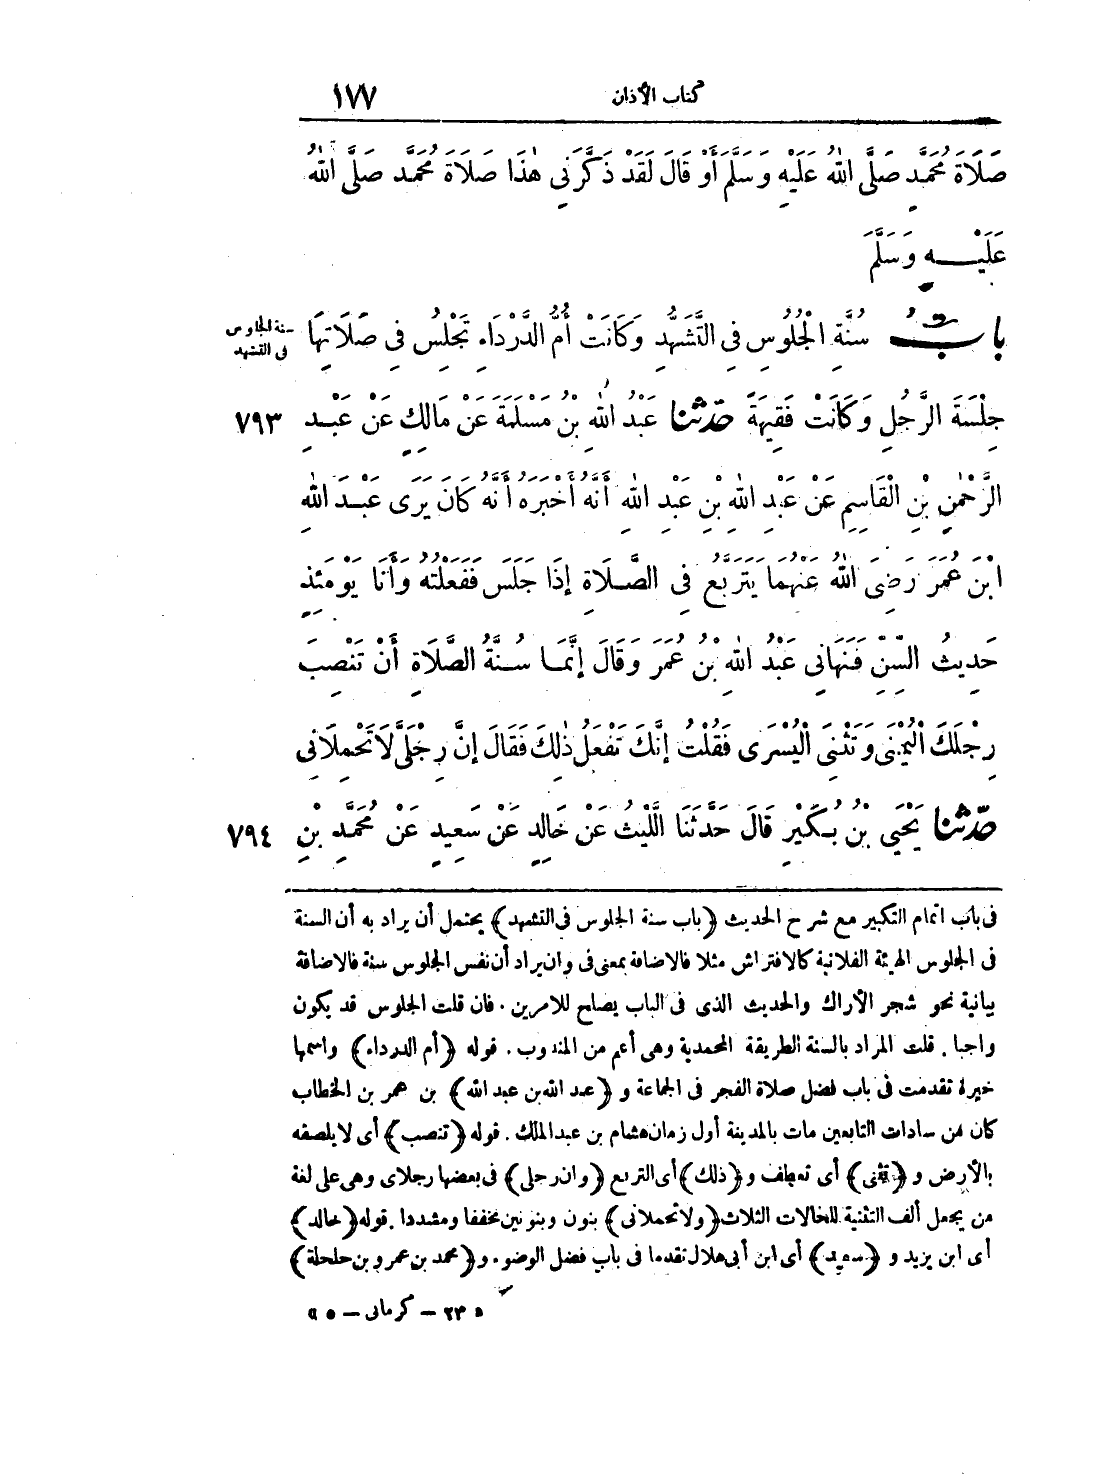 كتاب الأذان ١٧٧
صَلَاةَ مُحَمَّدٍ صَلَّى اللهُ عَلَيْهِ وَسَلَّمَ أَوْ قَالَ لَقَدْ ذَكَّرَنِي هٰذَا صَلَاةَ مُحَمَّدٍ صَلَّى اللهُ
عَلَيْهِ وَسَلَّمَ
بابُ سُنَّةِ الْجُلُوسِ فِي التَّشَهُّدِ وَكَانَتْ أُمُّ الدَّرْدَاءِ تَجْلِسُ فِي صَلَاتِهَا
سنة الجلوس
فى التشهد
جِلْسَةَ الرَّجُلِ وَكَانَتْ فَقِيهَةً حدّثنا عَبْدُ اللهِ بْنُ مَسْلَمَةَ عَنْ مَالِكٍ عَنْ عَبْدِ ٧٩٣
الرَّحْمٰنِ بْنِ الْقَاسِمِ عَنْ عَبْدِ اللهِ بْنِ عَبْدِ اللهِ أَنَّهُ أَخْبَرَهُ أَنَّهُ كَانَ يَرَى عَبْدَ اللهِ
ابْنَ عُمَرَ رَضِيَ اللهُ عَنْهُمَا يَتَرَبَّعُ فِي الصَّلَاةِ إِذَا جَلَسَ فَفَعَلْتُهُ وَأَنَا يَوْمَئِذٍ
حَدِيثُ السِّنِّ فَنَهَانِي عَبْدُ اللهِ بْنُ عُمَرَ وَقَالَ إِنَّمَا سُنَّةُ الصَّلَاةِ أَنْ تَنْصِبَ
رِجْلَكَ الْيُمْنَى وَتَثْنِيَ الْيُسْرَى فَقُلْتُ إِنَّكَ تَفْعَلُ ذٰلِكَ فَقَالَ إِنَّ رِجْلَيَّ لَا تَحْمِلَانِي
حدّثنا يَحْيَى بْنُ بُكَيْرٍ قَالَ حَدَّثَنَا اللَّيْثُ عَنْ خَالِدٍ عَنْ سَعِيدٍ عَنْ مُحَمَّدِ بْنِ ٧٩٤
فى باب اتمام التكبير مع شرح الحديث ﴿باب سنة الجلوس فى التشهد﴾ يحتمل أن يراد به أن السنة
فى الجلوس الهيئة الفلانية كالافتراش مثلا فالاضافة بمعنى فى وان يراد أن نفس الجلوس سنة فالاضافة
بيانية نحو شجر الأراك والحديث الذى فى الباب يصلح للامرين . فان قلت الجلوس قد يكون
واجبا . قلت المراد بالسنة الطريقة المحمدية وهى أعم من المندوب . قوله ﴿أم الدرداء﴾ واسمها
خيرة تقدمت فى باب فضل صلاة الفجر فى الجماعة و ﴿عبد الله بن عبد الله﴾ بن عمر بن الخطاب
كان من سادات التابعين مات بالمدينة أول زمان هشام بن عبد الملك . قوله ﴿تنصب﴾ أى لا يلصقه
بالأرض و ﴿تثنى﴾ أى تعطف و ﴿ذلك﴾ أى التربع ﴿وان رجلى﴾ فى بعضها رجلاى وهى على لغة
من يجعل ألف التثنية للحالات الثلاث ﴿ولا تحملانى﴾ بنون وبنونين مخففا ومشددا . قوله ﴿خالد﴾
أى ابن يزيد و ﴿سعيد﴾ أى ابن أبى هلال تقدما فى باب فضل الوضوء . و ﴿محمد بن عمرو بن حلحلة﴾
« ٢٣ – كرمانى – ٥ »